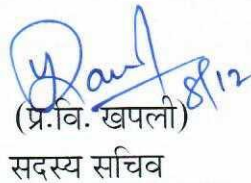 8/12
(प्र.वि. खपली)
सदस्य सचिव